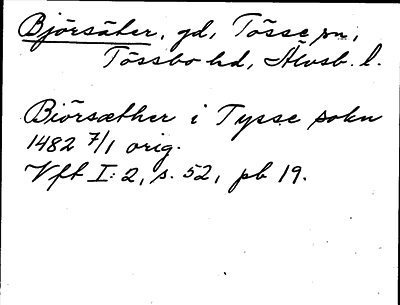 Björsäter, gd, Tösse sn,
Tössbo hd, Älvsb. l.
Biörsæther i Tysse sokn
1482 7/1 orig.
Vft I: 2, s. 52, pb 19.